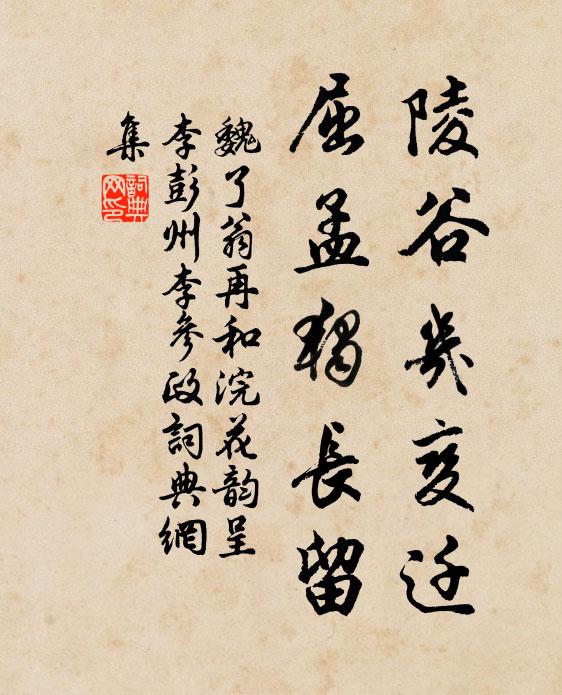 陵谷几变迁
屈孟独長留
魏了翁再和浣花韵呈
李彭州李参政詞典網
集
詞典
网印